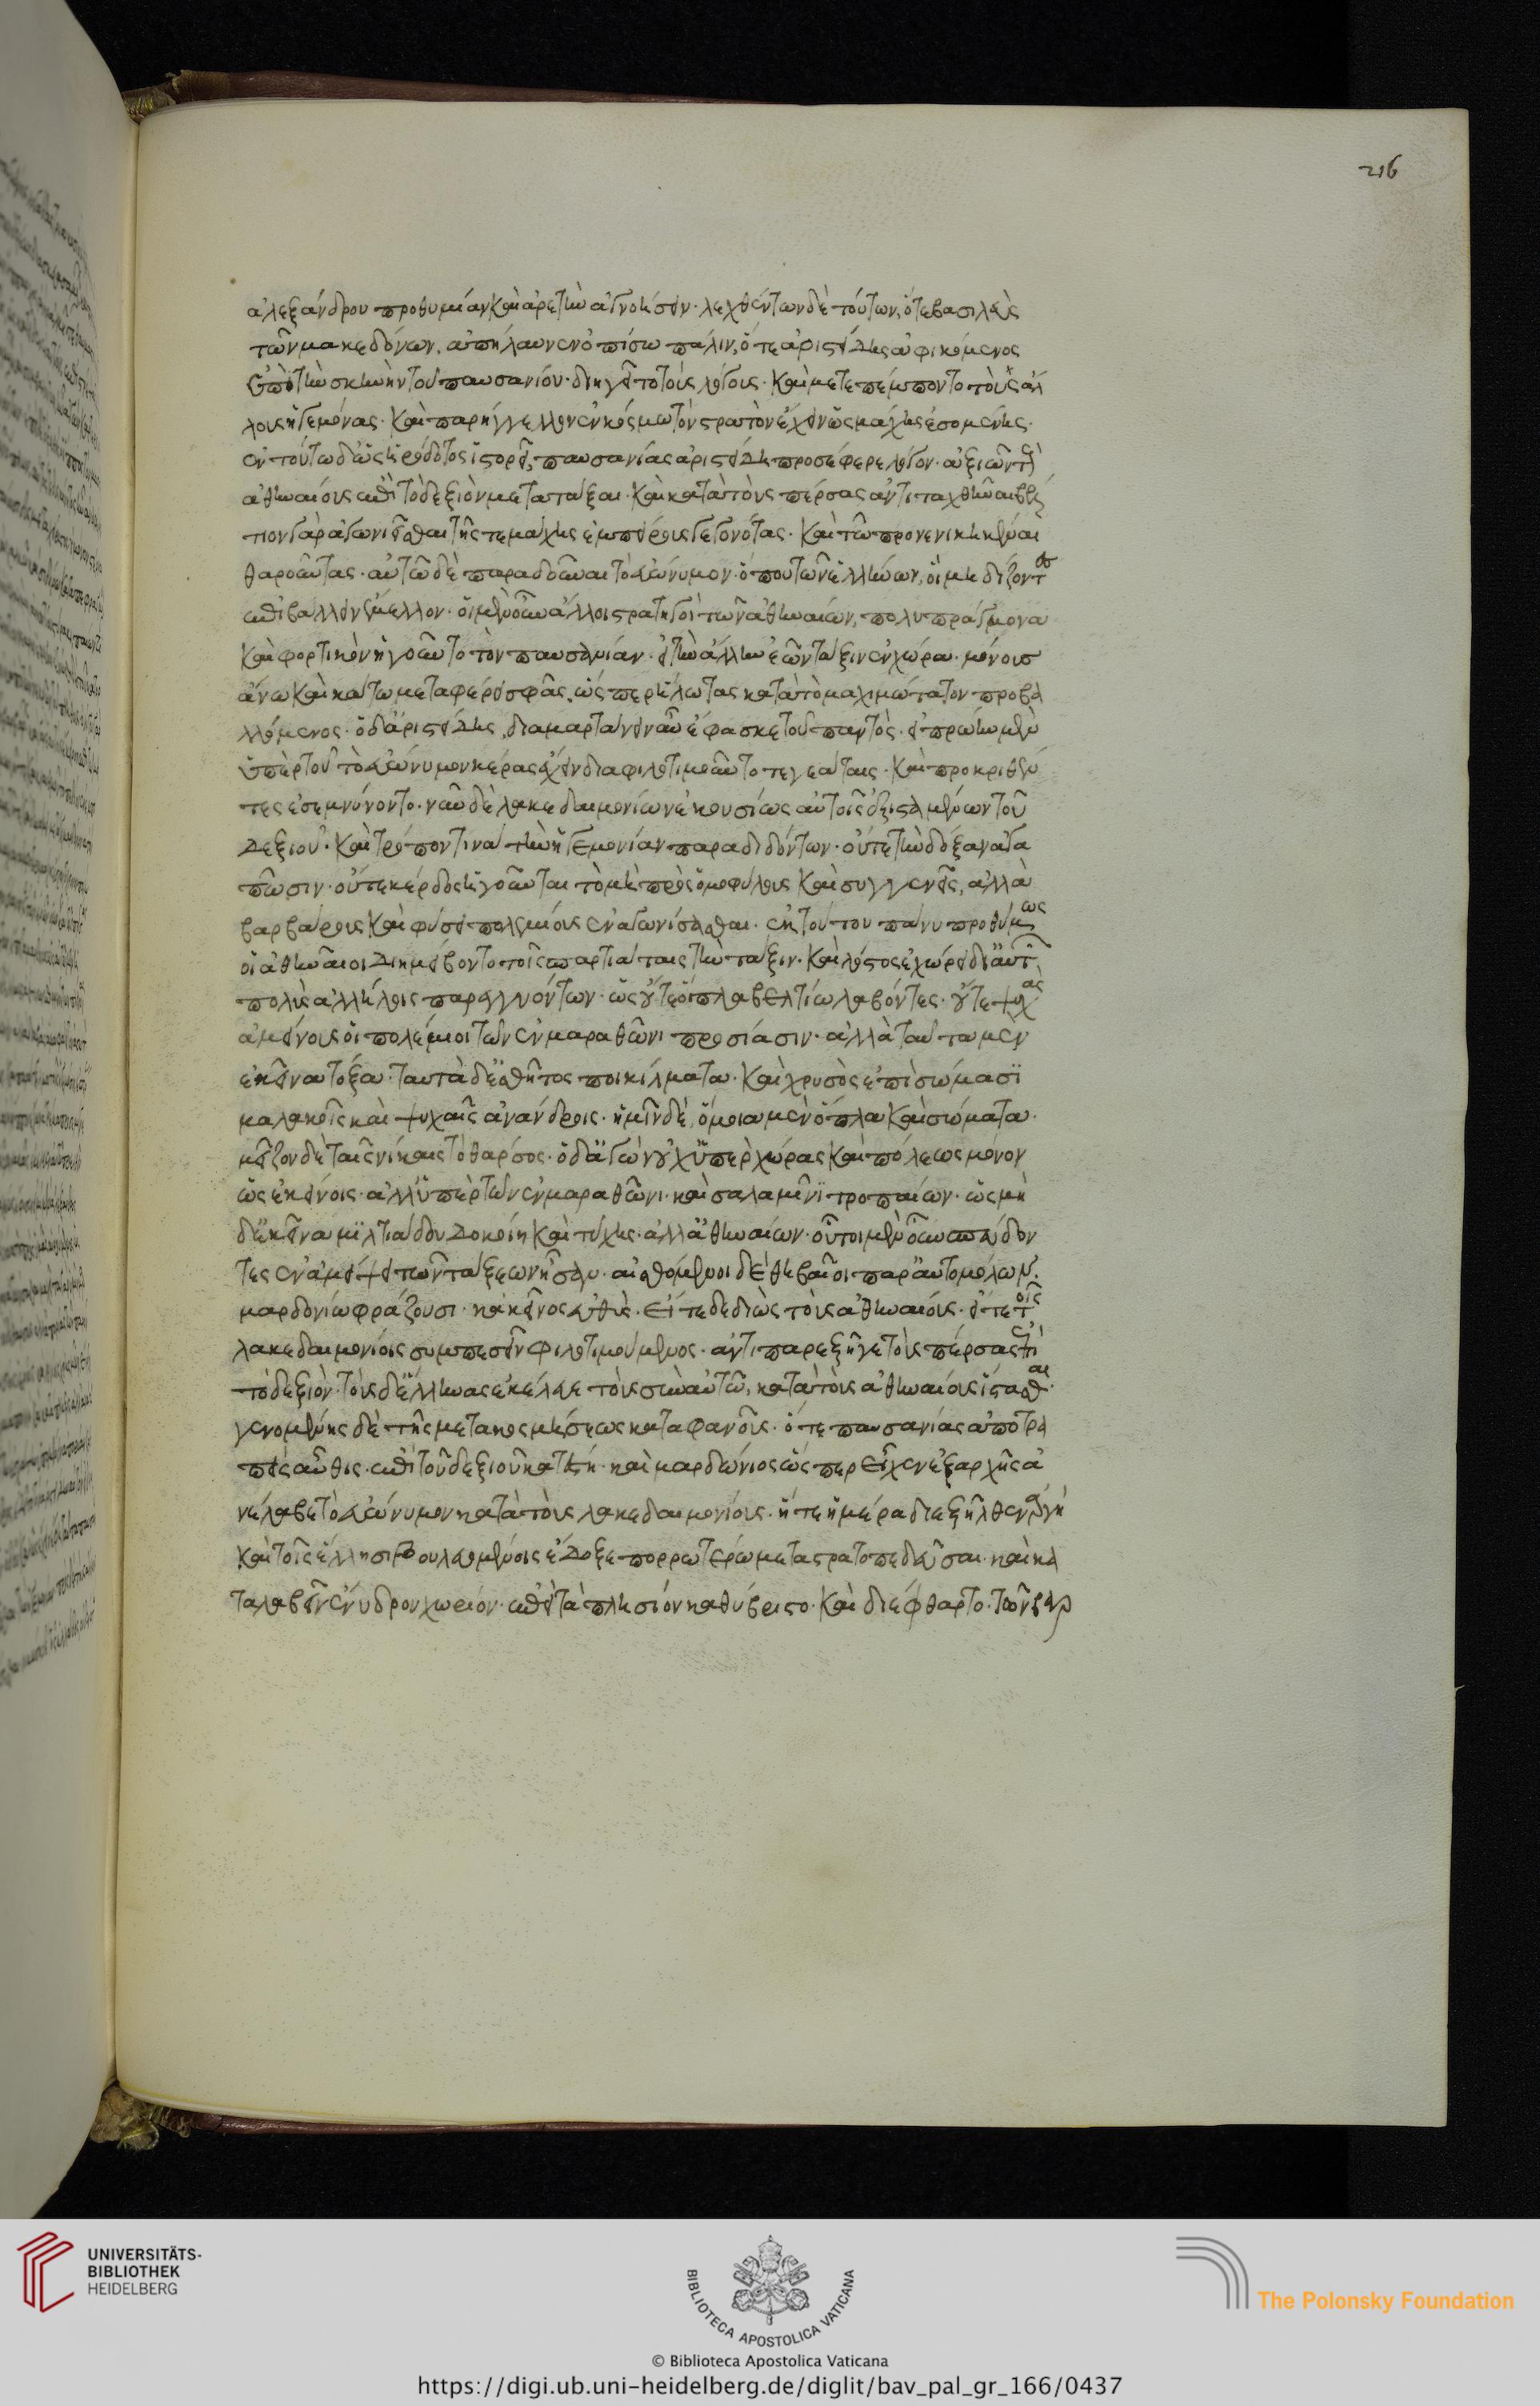 216
ἀλεξάνδρου προθυμίαν καὶ ἀρετὴν ἀγνοήσειν· λεχθέντων δὲ τούτων, ὅ τε βασιλεὺς
τῶν μακεδόνων, ἀπήλαυνεν ὀπίσω πάλιν, ὅ τε ἀριστείδης ἀφικόμενος
ὑπὸ τὴν σκηνὴν τοῦ παυσανίου· διηγεῖτο τοὺς λόγους· καὶ μετεπέμποντο τοὺς ἀλ
λους ἡγεμόνας· καὶ παρήγγελλον ἐν κόσμω τὸν στρατὸν ἔχειν ὡς μάχης ἐσομένης·
ἐν τούτω δ' ὡς ἡρόδοτος ἱστορεῖ, παυσανίας ἀριστείδη προσέφερε λόγον· ἀξιῶν τοὺς
ἀθηναίους ἐπὶ τὸ δεξιὸν μετατάξαι· καὶ κατὰ τοὺς πέρσας ἀντιταχθῆναι βέλ
τιον γὰρ ἀγωνιεῖσθαι τῆς τε μάχης ἐμπείρους γεγονότας· καὶ τῶ προνενικηκέναι
θαροῦντας· αὐτῶ δὲ παραδοῦναι τὸ εὐώνυμον· ὅπου τῶν ἑλλήνων, οἱ μηδίζοντες
ἐπιβάλλειν ἔμελλον· οἱ μὲν οὖν ἄλλοι στρατηγοὶ τῶν ἀθηναίων, πολυπράγμονα
καὶ φορτικὸν ἡγοῦντο τὸν παυσανίαν· εἰ τὴν ἄλλην ἐῶν τάξιν ἐν χώρα· μόνους
ἄνω καὶ κάτω μεταφέρει σφᾶς, ὥσπερ εἵλωτας κατὰ τὸ μαχιμώτατον προβα
λλόμενος· ὁ δ' ἀριστείδης, διαμαρτάνειν αὐ ἔφασκε τοῦ παντός· εἰ πρώην μὲν
ὑπὲρ τοῦ τὸ εὐώνυμον κέρας ἔχειν διαφιλοτιμοῦντο τεγεάταις· καὶ προκριθέν
τες ἐσεμνύνοντο· νῦν δὲ λακεδαιμονίων ἑκουσίως αὐτοῖς ἐξισταμένων τοῦ
δεξιοῦ· καὶ τρόπον τινὰ τὴν ἡγεμονίαν παραδιδόντων· οὔτε τὴν δόξαν ἀγα
πῶσιν· οὔτε κέρδος ἡγοῦνται τὸ μὴ πρὸς ὁμοφύλους καὶ συγγενεῖς, ἀλλὰ
βαρβάρους καὶ φύσει πολεμίους ἐναγωνίσασθαι. ἐκ τούτου πάνυ προθύμως
οἱ ἀθηναῖοι διημείβοντο τοῖς σπαρτιάταις τὴν τάξιν· καὶ λόγος ἐχώρει δι' αὐτῶν
πολὺς ἀλλήλοις παραινούντων· ὡς οὔτε ὅπλα βελτίω λαβόντες· οὔτε ψυχὰς
ἀμείνους οἱ πολέμιοι τῶν ἐν μαραθῶνι προσίασιν· ἀλλὰ ταῦτα μὲν
ἐκεῖνα τόξα· ταυτὰ δὲ ἐσθῆτος ποικίλματα· καὶ χρυσὸς ἐπὶ σώμασι
μαλακοῖς καὶ ψυχαῖς ἀνάνδροις· ἡμῖν δὲ, ὅμοια μὲν ὅπλα καὶ σώματα·
μεῖζον δὲ ταῖς νίκαις τὸ θάρσος· ὁ δ' ἀγὼν οὐχ ὑπὲρ χώρας καὶ πόλεως μόνον
ὡς ἐκείνοις· ἀλλ' ὑπὲρ τῶν ἐν μαραθῶνι· καὶ σαλαμῖνι τροπαίων· ὡς μη
δ' ἐκεῖνα μιλτιάδου δοκοίη καὶ τύχης· ἀλλ' ἀθηναίων· οὗτοι μὲν οὖν σπεύδον
τες ἐν ἀμείψει τῶν τάξεων ἦσαν· αἰσθόμενοι δὲ θηβαῖοι παρ' αὐτομόλων.
μαρδονίω φράζουσι· κἀκεῖνος εὐθὺς· εἴτε δεδιὼς τοὺς ἀθηναίους· εἴτε τοῖς
λακεδαιμονίοις συμπεσεῖν φιλοτιμούμενος· ἀντιπαρεξῆγε τοὺς πέρσας ἐπὶ
τὸ δεξιὸν· τοὺς δὲ ἕλληνας ἐκέλευε τοὺς σὺν αὐτῶ, κατὰ τοὺς ἀθηναίους ἵστασθαι·
γενομένης δὲ τῆς μετακοσμήσεως καταφανοῦς· ὅ τε παυσανίας ἀποτρα
πεὶς αὖθις· ἐπὶ τοῦ δεξιοῦ κατέστη· καὶ μαρδώνιος ὥσπερ εἶχεν ἐξαρχῆς ἀ
νέλαβε τὸ εὐώνυμον κατὰ τοὺς λακεδαιμονίους· ἥ τε ἡμέρα διεξῆλθεν ἀργὴ
καὶ τοῖς ἕλλησι βουλευομένοις ἔδοξε πορρωτέρω μεταστρατοπεδεῦσαι· καὶ κα
ταλαβεῖν ἔνυδρον χωρίον· ἐπεὶ τὰ πλησίον καθύβριστο· καὶ διέφθαρτο· τῶν βαρ
UNIVERSITÄTS-
BIBLIOTHEK
HEIDELBERG
BIBLIOTECA APOSTOLICA VATICANA
The Polonsky Foundation
© Biblioteca Apostolica Vaticana
https://digi.ub.uni-heidelberg.de/diglit/bav_pal_gr_166/0437